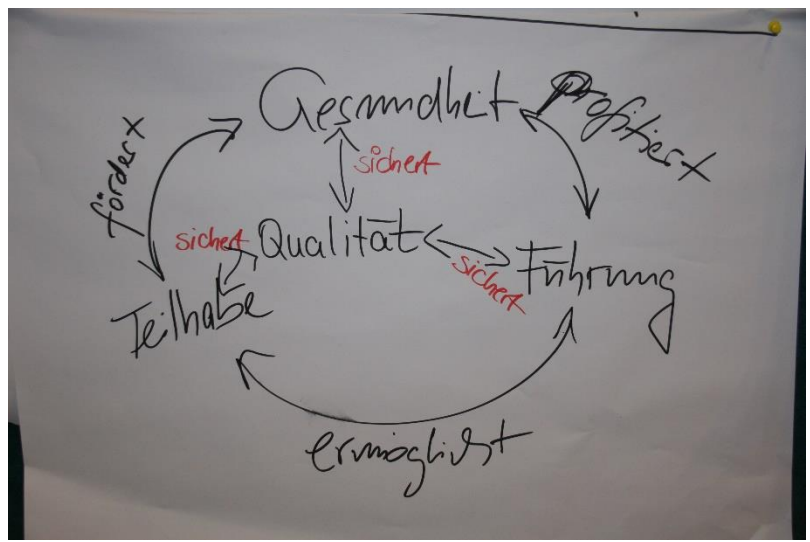 Gesundheit
Profitiert
fördert
sichert
sichert
Qualität
sichert
Führung
Teilhabe
ermöglicht